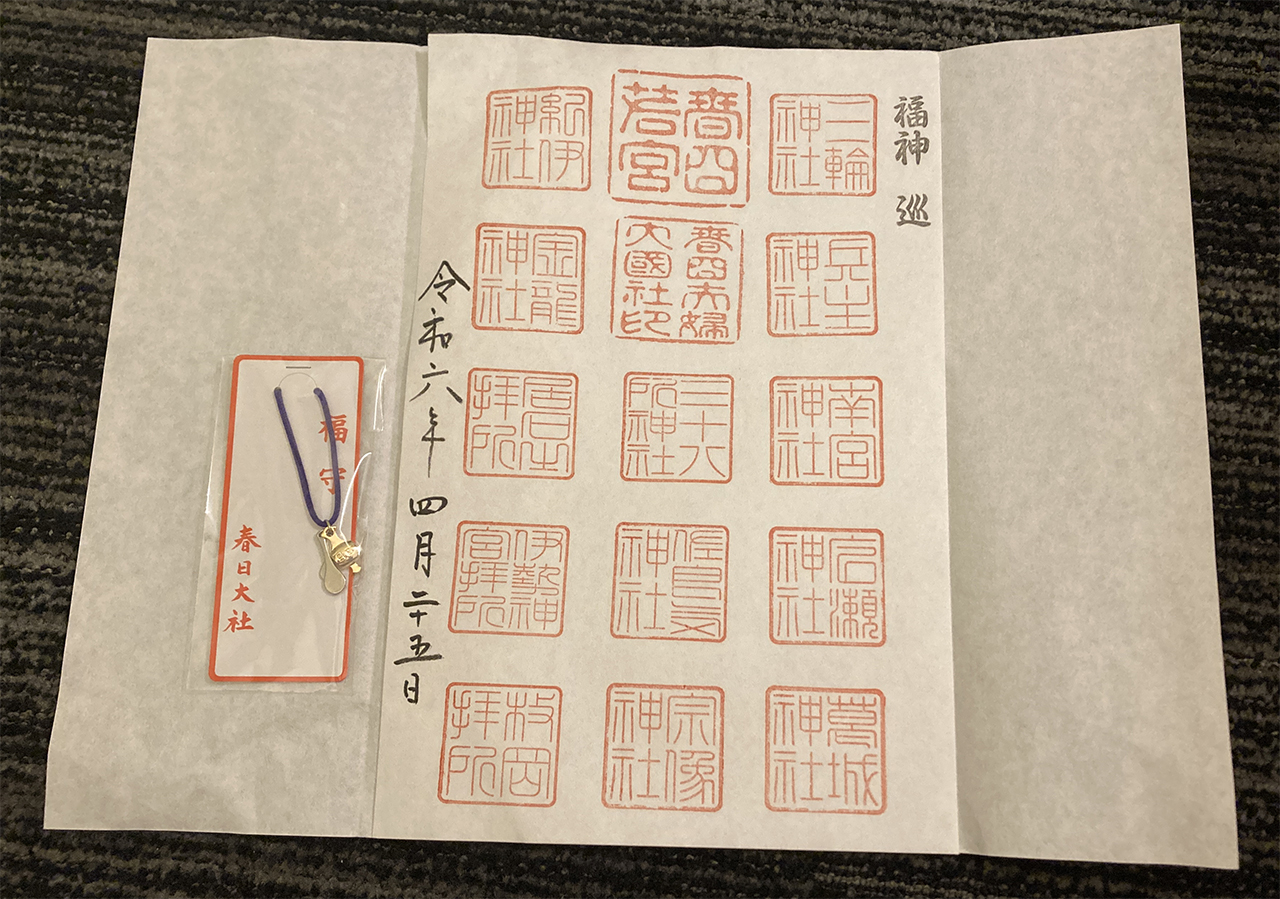 福神 巡
三輪神社
兵主神社
南宮神社
広瀬神社
葛城神社
春日若宮
春日夫婦大國社印
三十八所神社
佐良気神社
宗像神社
紀伊神社
金龍神社
拝所
伊勢神宮拝所
枚岡拝所
令和六年 四月二十五日
福守
春日大社